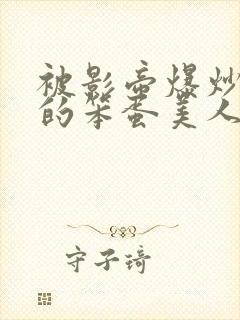 被影帝爆炒
的笨蛋美人
守子琦